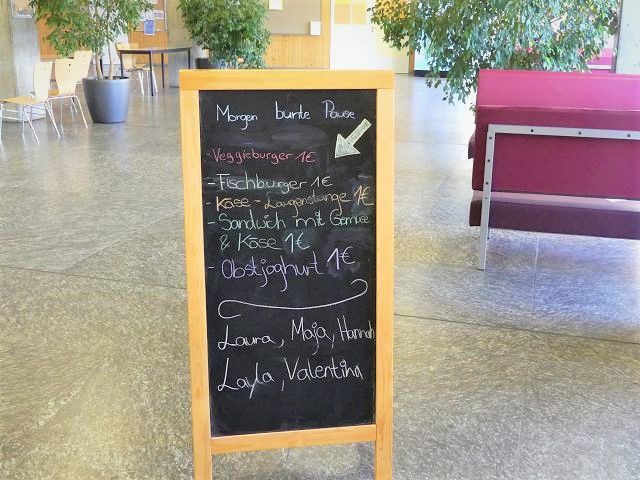 Morgen bunte Pause
- Veggieburger 1€
- Fischburger 1€
- Käse - Laugenstange 1€
- Sandwich mit Gemüse
& Käse 1€
- Obstjoghurt 1€
Laura, Maja, Hannah
Layla, Valentina